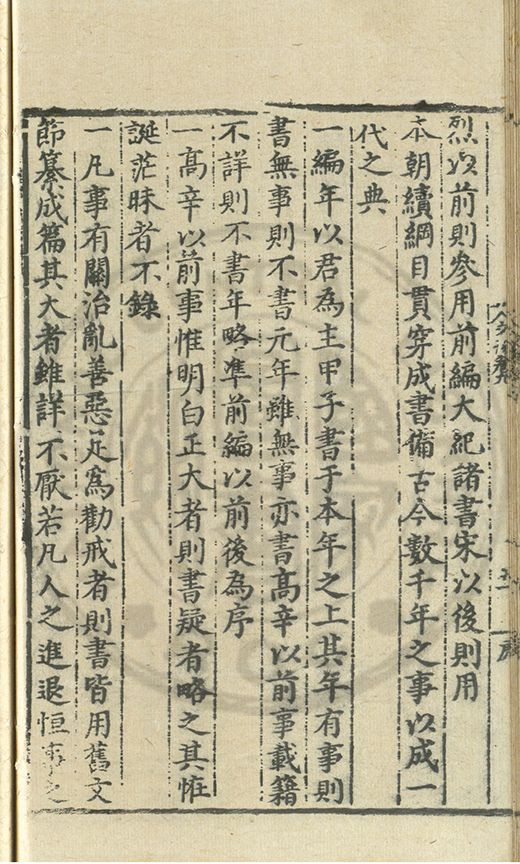 烈以前則參用前編大紀諸書宋以後則用
本朝續綱目貫穿成書備古今數千年之事以成一
代之典
一編年以君為主甲子書于本年之上其年有事則
書無事則不書元年雖無事亦書高辛以前事載籍
不詳則不書年略準前編以前後為序
一高辛以前事惟明白正大者則書疑者略之其恠
誕茫昧者不錄
一凡事有關治亂善惡足為勸戒者則書皆用舊文
節纂成篇其大者雖詳不厭若凡人之進退恒事之